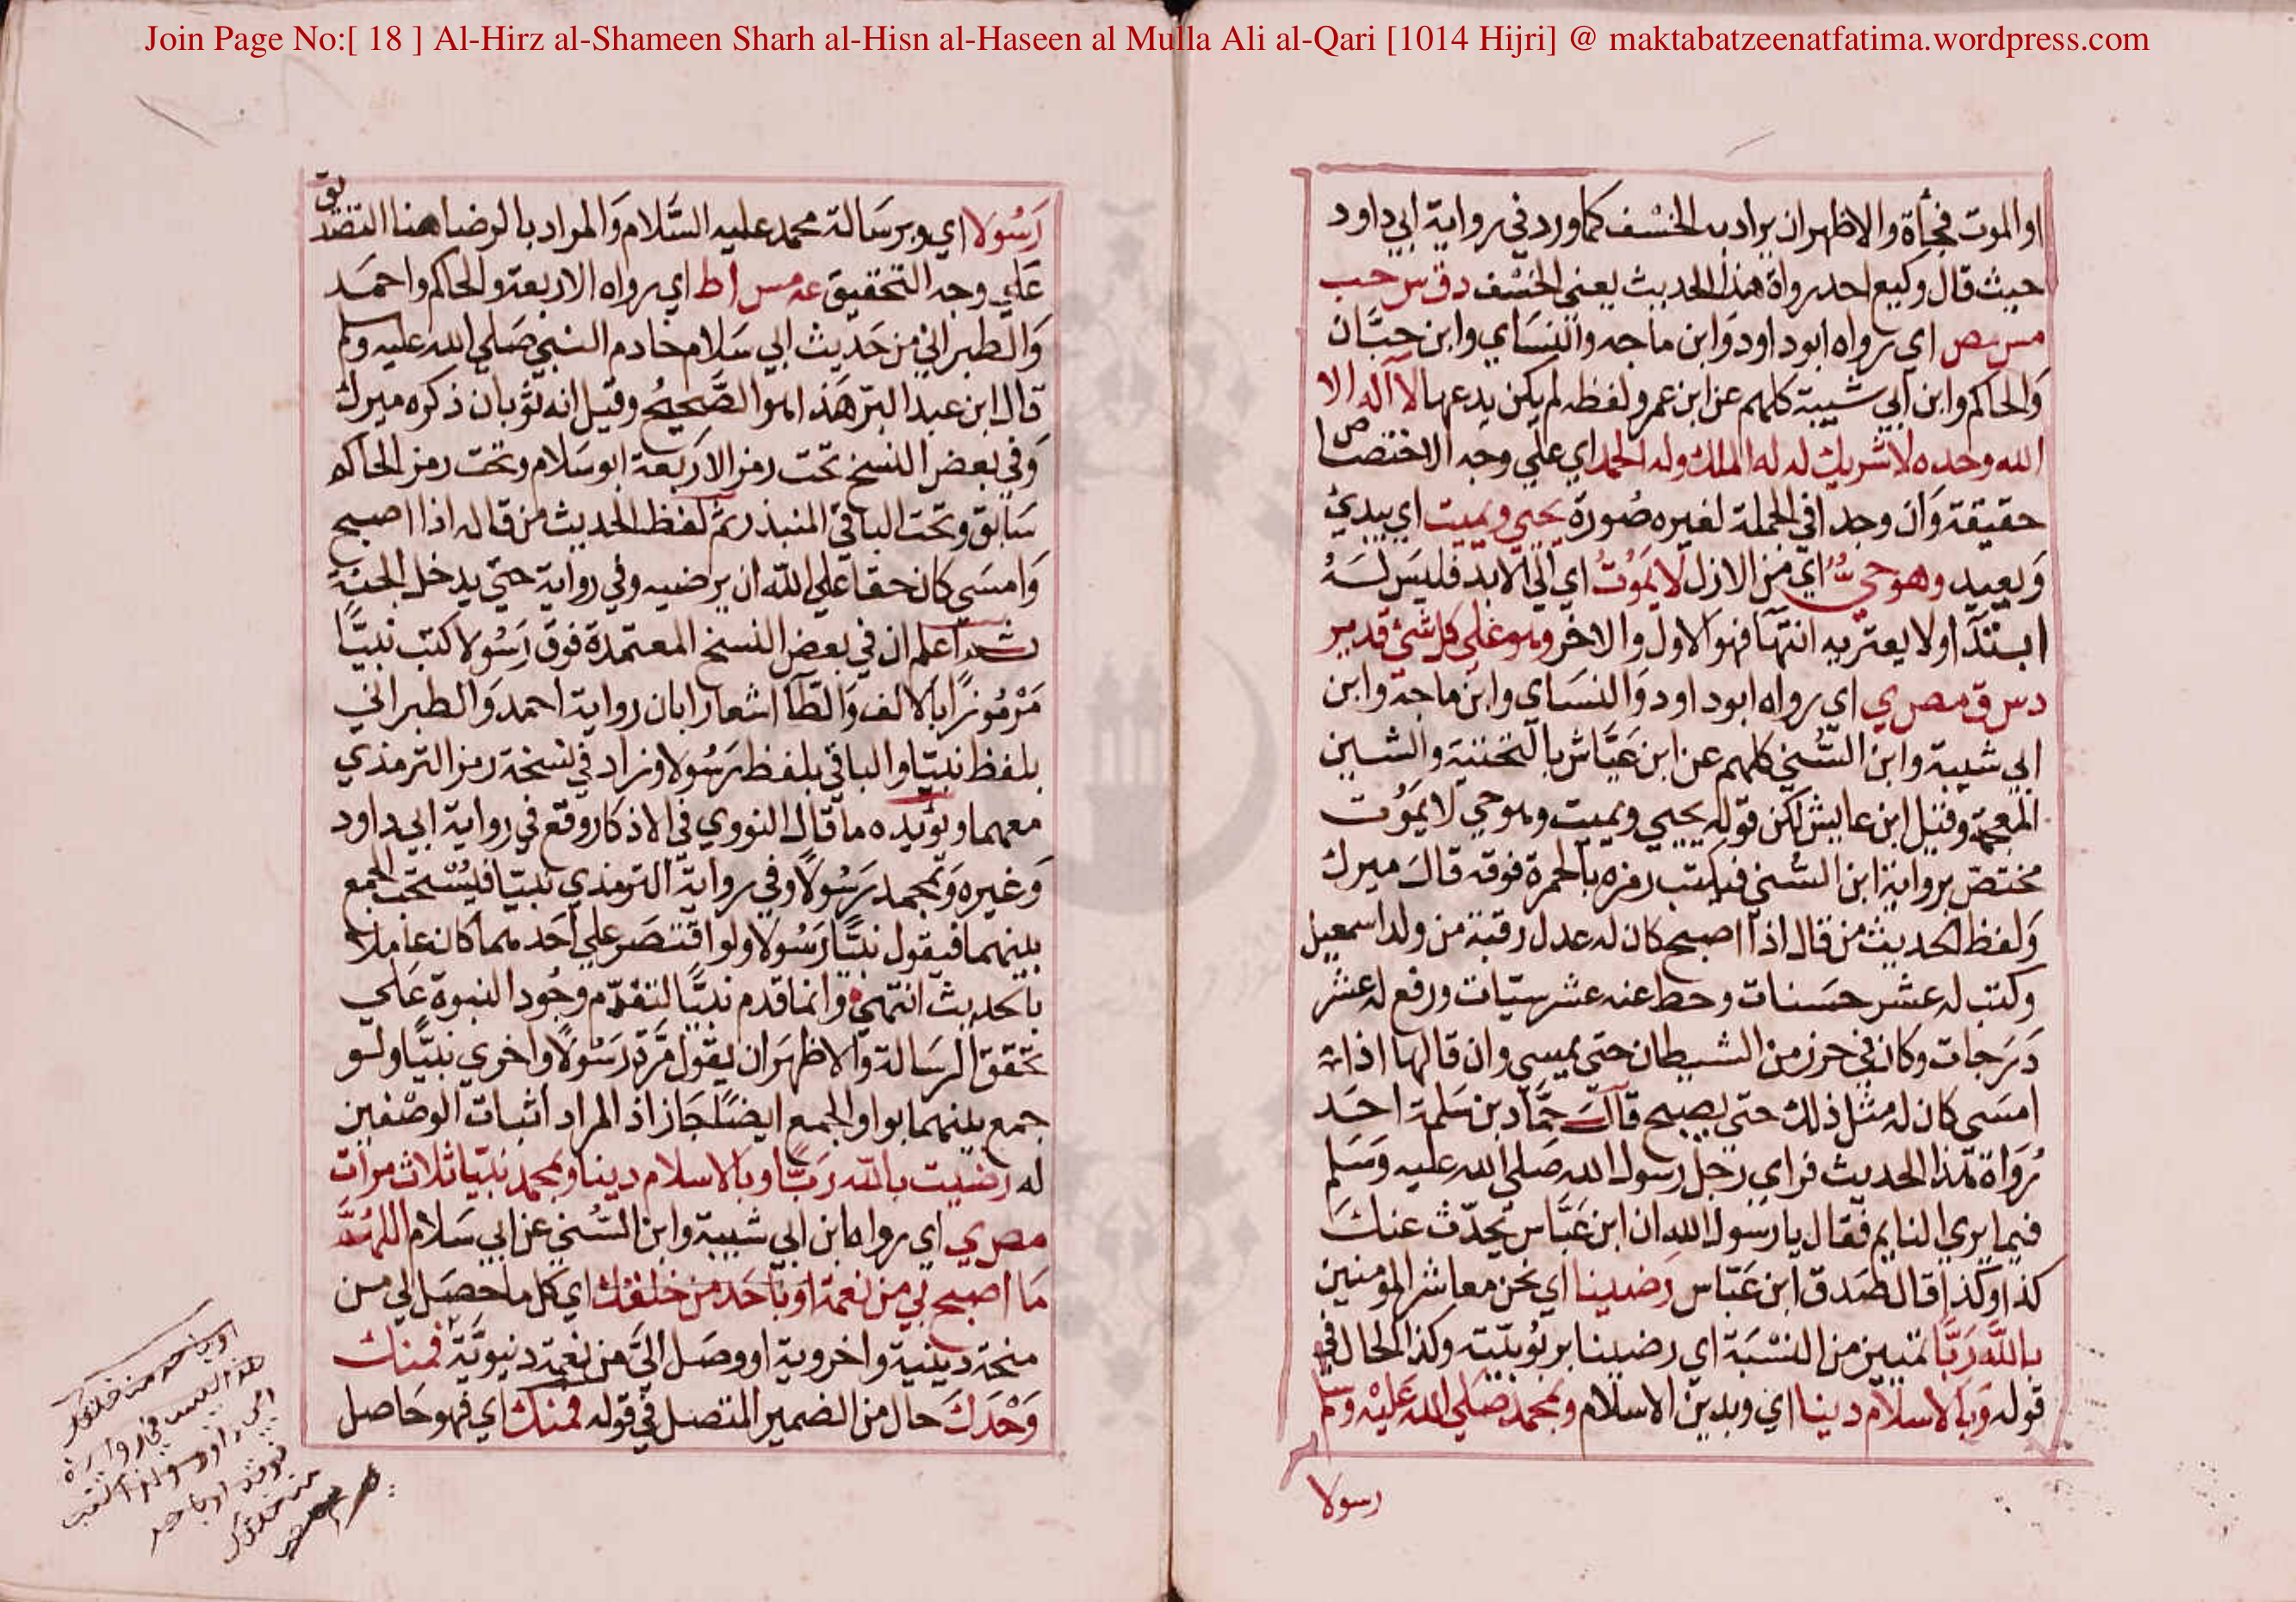 Join Page No:[ 18 ] Al-Hirz al-Shameen Sharh al-Hisn al-Haseen al Mulla Ali al-Qari [1014 Hijri] @ maktabatzeenatfatima.wordpress.com
او الموت فجأة والاظهران يراد به الخسف كما ورد في رواية ابي داود
حيث قال وكيع احد رواة هذا الحديث يعني الخسف د ق س حب
مس مص اي رواه ابو داود وابن ماجه والنسائي وابن حبان
والحاكم وابن ابي شيبة كلهم عن ابن عمر ولفظه لم يكن يدعها لا اله الا
الله وحده لا شريك له له الملك وله الحمد اي علي وجه الاختصاص
حقيقة وان وجد في الجملة لغيره صورة يحيي ويميت اي يبدئ
ويعيد وهو حي اي من الازل لا يموت اي الي الابد فليس له
ابتداء ولا يعتريه انتهاء فهو الاول والاخر وهو علي كل شئ قدير
د س ق مص ي اي رواه ابو داود والنسائ وابن ماجة وابن
ابي شيبة وابن السني كلهم عن ابن عياش بالتحتية والشين
المعجمة وقيل ابن عايش لكن قوله يحيي ويميت وهو حي لا يموت
مختص برواية ابن السني فيكتب رمزه بالحمرة فوقه قال ميرك
ولفظ الحديث من قال اذا اصبح كان له عدل رقبة من ولد اسمعيل
وكتب له عشر حسنات وحط عنه عشر سيئات ورفع له عشر
درجات وكان في حرز من الشيطان حتي يمسي وان قالها اذا
امسي كان له مثل ذلك حتي يصبح قال حماد بن سلمة احد
رواة هذا الحديث فراي رجل رسول الله صلي الله عليه وسلم
فيما يري النايم فقال يا رسول الله ان ابن عياش يحدث عنك
كذا وكذا قال صدق ابن عياش رضينا اي نحن معاشر المومنين
بالله ربا تمييز من النسبة اي رضينا بربوبيته وكذا الحال في
قوله وبالاسلام دينا اي وبدين الاسلام وبمحمد صلي الله عليه وسلم
رسولا
رسولا اي وبرسالة محمد عليه السلام والمراد بالرضا هنا التصديق
علي وجه التحقيق عه مس ا ط اي رواه الاربعة والحاكم واحمد
والطبراني من حديث ابي سلام خادم النبي صلي الله عليه وسلم
قال ابن عبد البر هذا هو الصحيح وقيل انه ثوبان ذكره ميرك
وفي بعض النسخ تحت رمز الاربعة ابو سلام وتحت رمز الحاكم
سابق وتحت الباقي المنيذر ثم لفظ الحديث من قاله اذا اصبح
وامسي كان حقا علي الله ان يرضيه وفي رواية حتي يدخل الجنة
ثم اعلم ان في بعض النسخ المعتمدة فوق رسولا كتب نبيا
مرموزا بالالف والطا اشعارا بان رواية احمد والطبراني
بلفظ نبيا والباقي بلفظ رسولا وزاد في نسخة رمز الترمذي
معهما ويؤيده ما قال النووي في الاذكار وقع في رواية ابي داود
وغيره وبمحمد رسولا وفي رواية الترمذي نبيا فيستحب الجمع
بينهما فيقول نبيا رسولا ولو اقتصر علي احدهما كان عاملا
بالحديث انتهي وانما قدم نبيا لتقدم وجود النبوة علي
تحقق الرسالة والاظهر ان يقول مرة رسولا واخري نبيا ولو
جمع بينهما بواو الجمع ايضا لجاز اذ المراد اثبات الوصفين
له رضيت بالله ربا وبالاسلام دينا وبمحمد نبيا ثلاث مرات
مص ي اي رواه ابن ابي شيبة وابن السني عن ابي سلام اللهم
ما اصبح بي من نعمة او باحد من خلقك اي كل ما حصل لي من
منحة دينية واخروية او وصل الي من نعمة دنيوية فمنك
وحدك حال من الضمير المتصل في قوله فمنك اي فهو حاصل
او باحد من خلقك